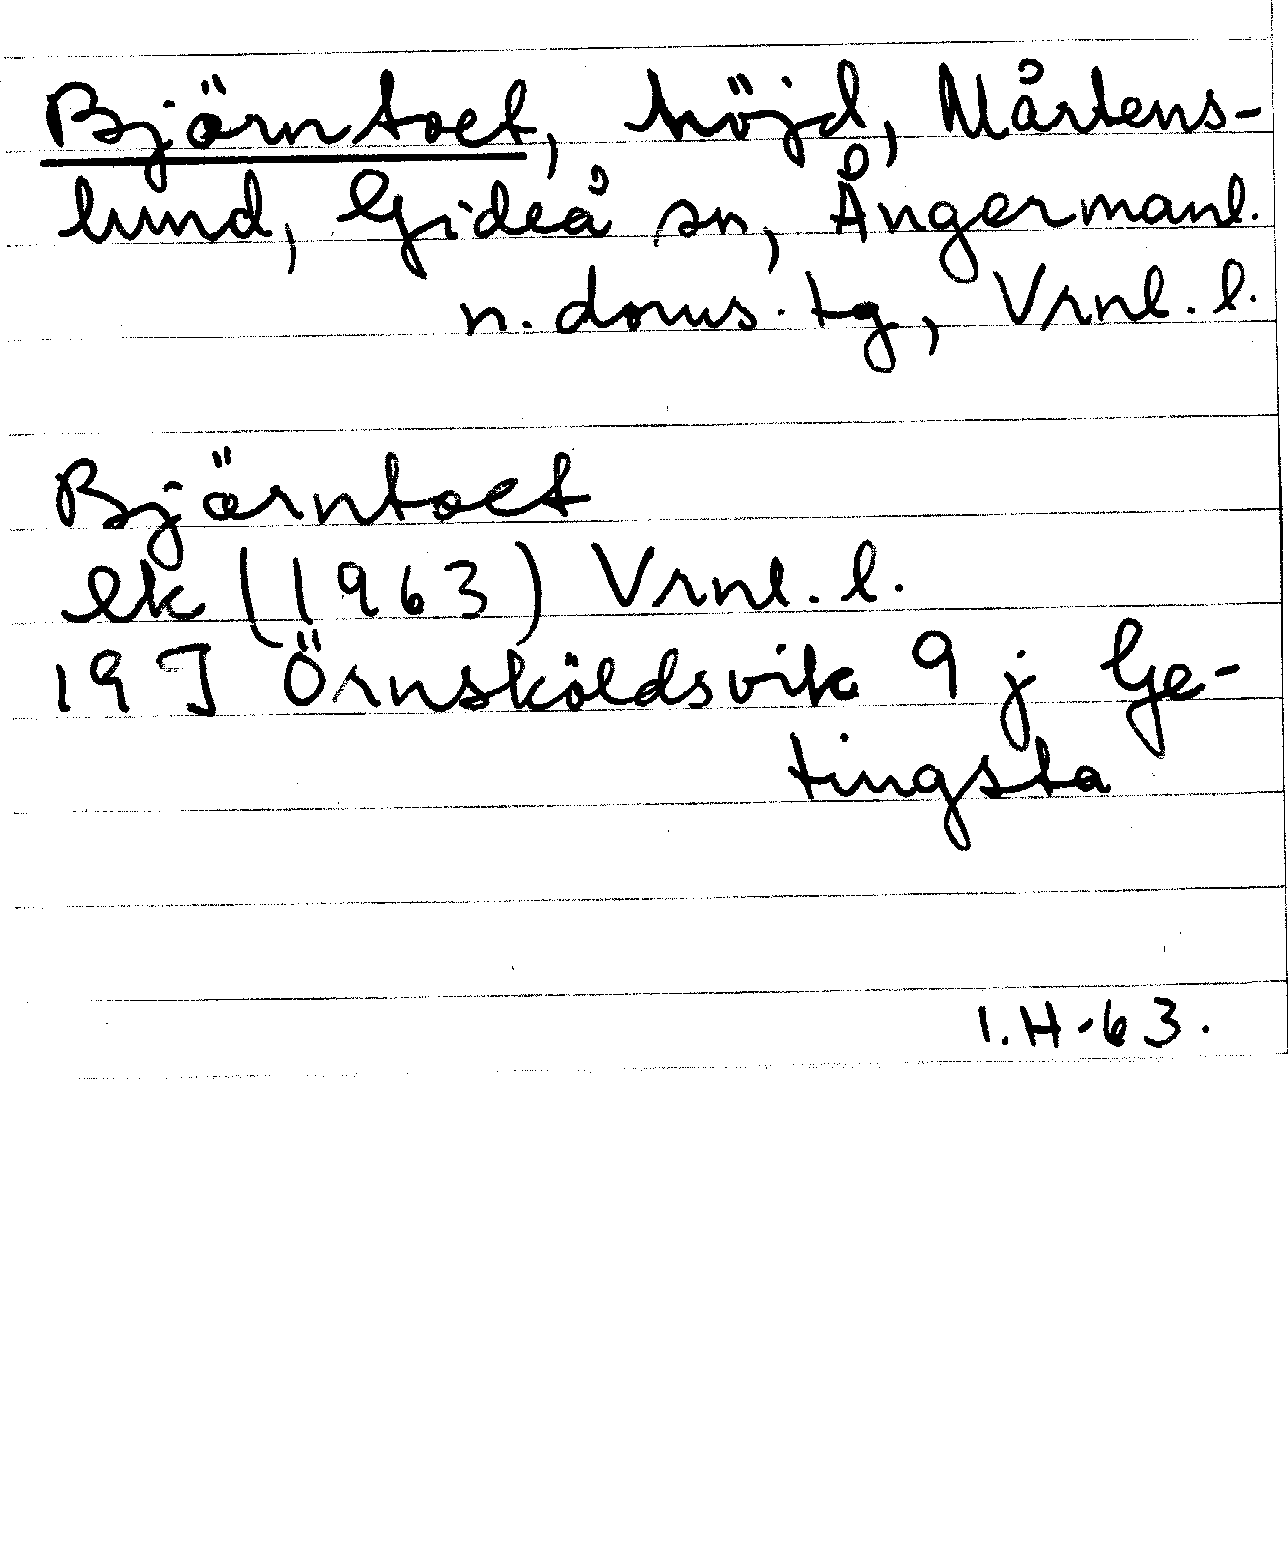 Björntoet, höjd, Mårtens-
lund, Gideå sn, Ångermanl.
n. doms. tg, Vrnl. l.
Björntoet
ek (1963) Vrnl. l.
19 J Örnsköldsvik 9 j Ge-
tingsta
I.H-63.